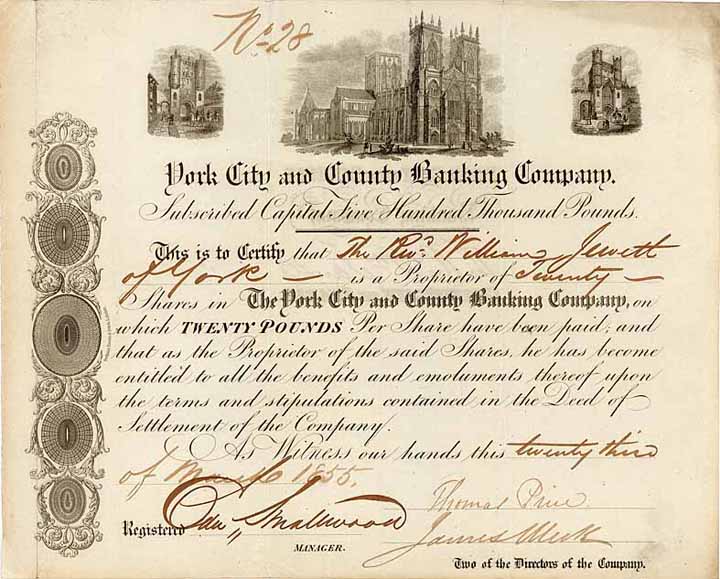 No. 28
York City and County Banking Company.
Subscribed Capital Five Hundred Thousand Pounds.
This is to Certify that The Revd. William Jewett
of York — is a Proprietor of Twenty —
Shares in The York City and County Banking Company, on
which TWENTY POUNDS Per Share have been paid; and
that as the Proprietor of the said Shares, he has become
entitled to all the benefits and emoluments thereof upon
the terms and stipulations contained in the Deed of
Settlement of the Company.
As Witness our hands this twenty third
of March 1855.
Thomas
Registered Smallwood
James Meek
MANAGER.
Two of the Directors of the Company.